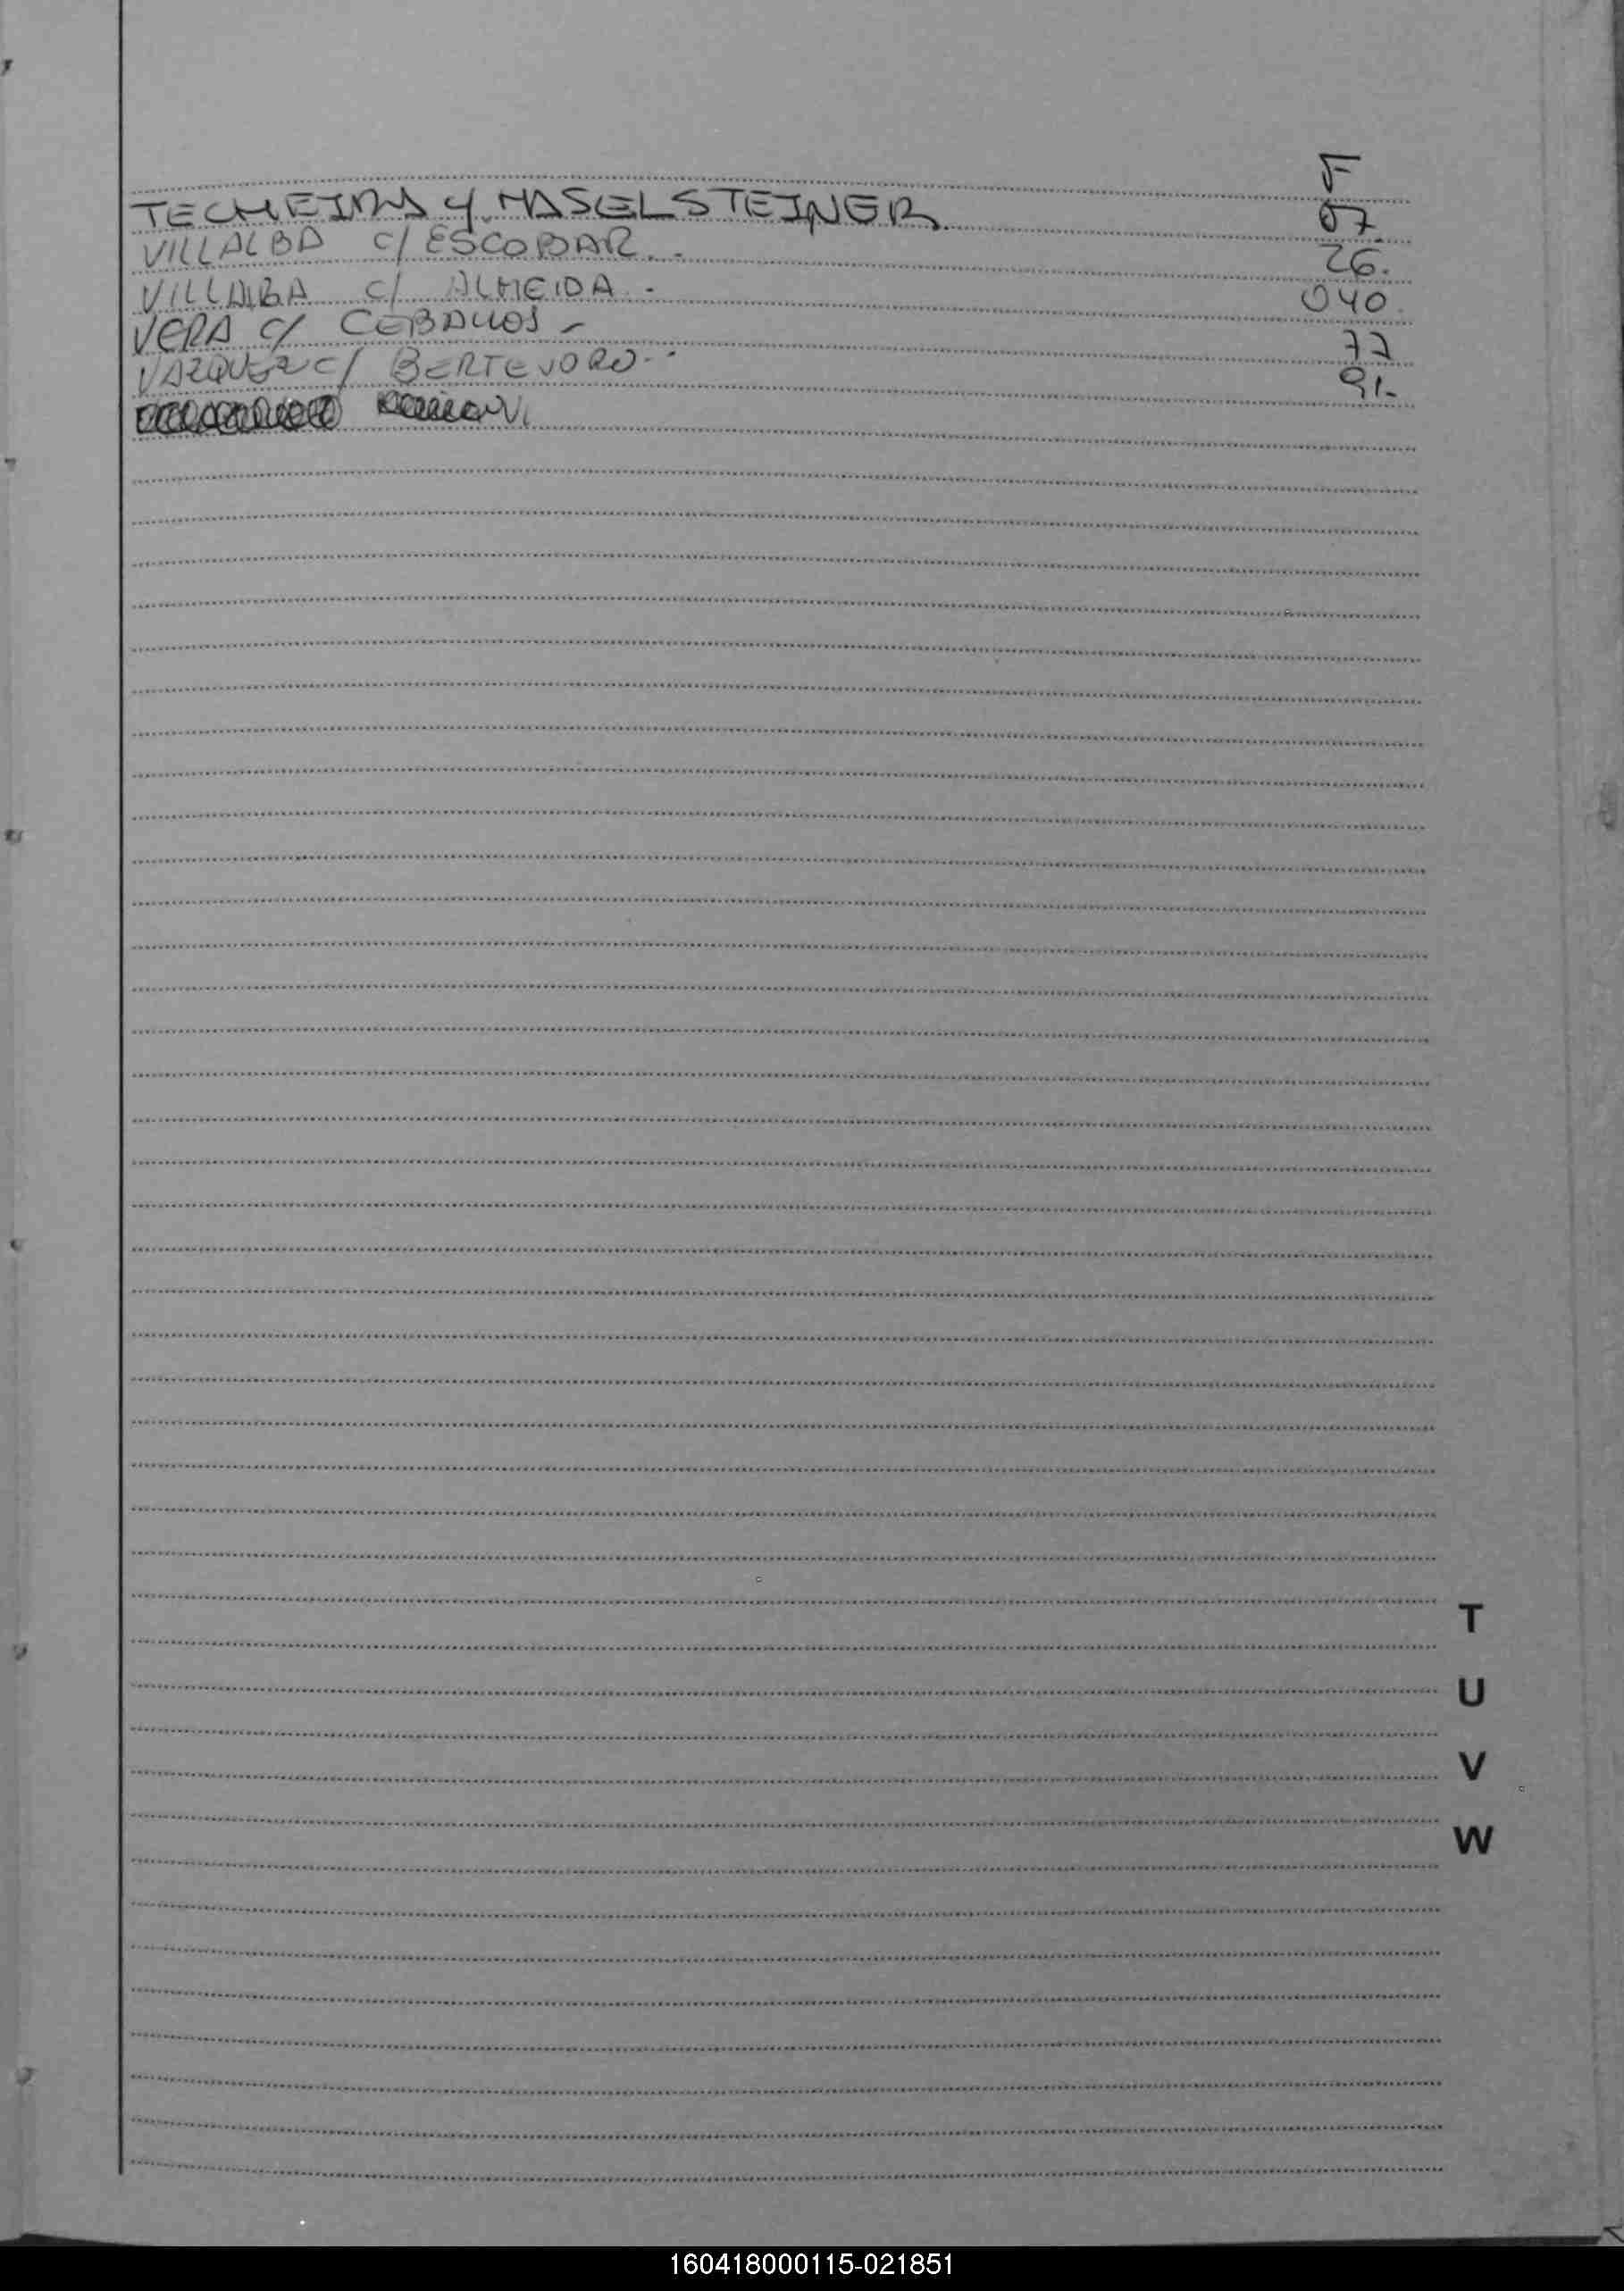 F
TECHEIRA Y HASELSTEINER 07
VILLALBA c/ ESCOBAR. 26.
VILLALBA c/ ALMEIDA. 040.
VERA c/ CEBALLOS - 77
VAZQUEZ c/ 91-
T
U
V
W
160418000115-021851